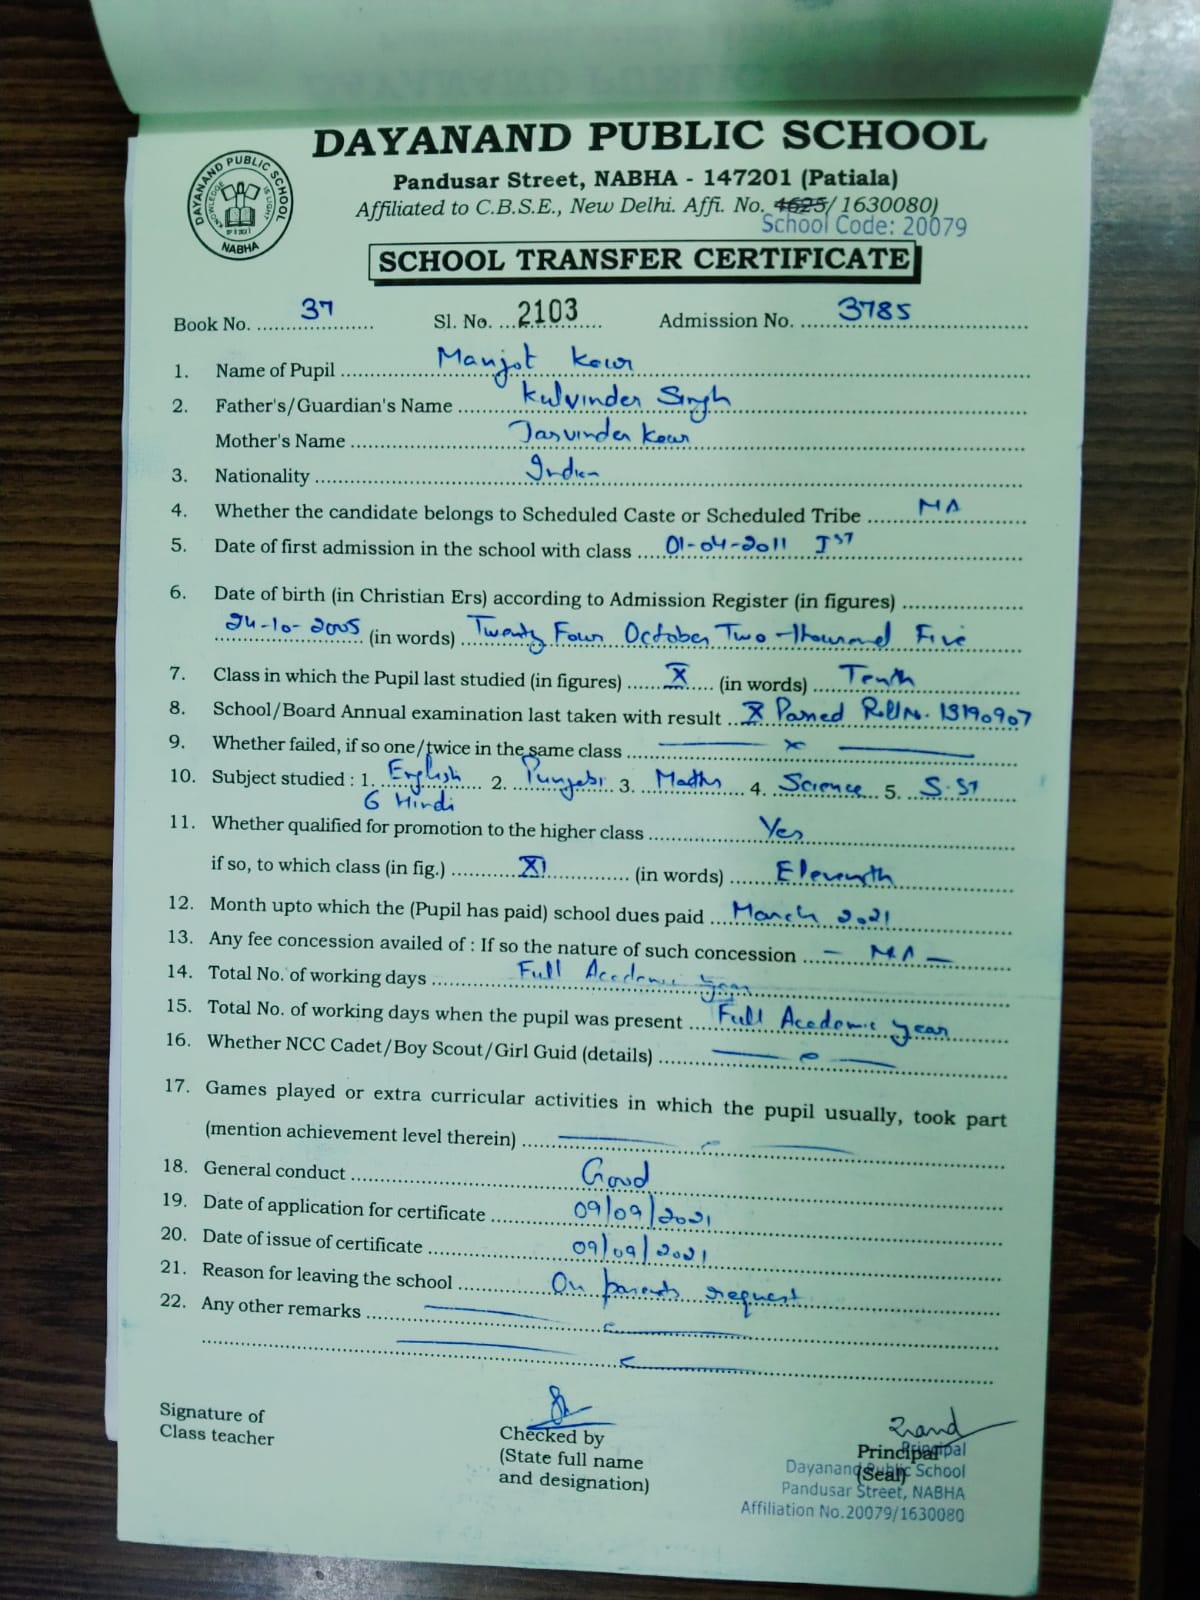 DAYANAND PUBLIC SCHOOL
DAYANAND PUBLIC SCHOOL
KNOWLEDGE IS LIGHT
NABHA
Pandusar Street, NABHA - 147201 (Patiala)
Affiliated to C.B.S.E., New Delhi. Affi. No. 4625/ 1630080)
School Code: 20079
SCHOOL TRANSFER CERTIFICATE
Book No. 37 Sl. No. 2103 Admission No. 3785
1. Name of Pupil Manjot Kaur
2. Father's/Guardian's Name Kulvinder Singh
Mother's Name Jasvinder Kaur
3. Nationality Indian
4. Whether the candidate belongs to Scheduled Caste or Scheduled Tribe NA
5. Date of first admission in the school with class 01-04-2011 Ist
6. Date of birth (in Christian Ers) according to Admission Register (in figures)
24-10-2005 (in words) Twenty Four October Two thousand Five
7. Class in which the Pupil last studied (in figures) X (in words) Tenth
8. School/Board Annual examination last taken with result X Passed Roll No. 13190907
9. Whether failed, if so one/twice in the same class — x —
10. Subject studied : 1. English 2. Punjabi 3. Maths 4. Science 5. S.St
6 Hindi
11. Whether qualified for promotion to the higher class Yes
if so, to which class (in fig.) XI (in words) Eleventh
12. Month upto which the (Pupil has paid) school dues paid March 2021
13. Any fee concession availed of : If so the nature of such concession — NA —
14. Total No. of working days Full Academic year
15. Total No. of working days when the pupil was present Full Academic year
16. Whether NCC Cadet/Boy Scout/Girl Guid (details)
17. Games played or extra curricular activities in which the pupil usually, took part
(mention achievement level therein)
18. General conduct Good
19. Date of application for certificate 09/09/2021
20. Date of issue of certificate 09/09/2021
21. Reason for leaving the school On parents request
22. Any other remarks
Signature of
Class teacher
Checked by
(State full name
and designation)
Principal
(Seal)
Principal
Dayanand Public School
Pandusar Street, NABHA
Affiliation No.20079/1630080